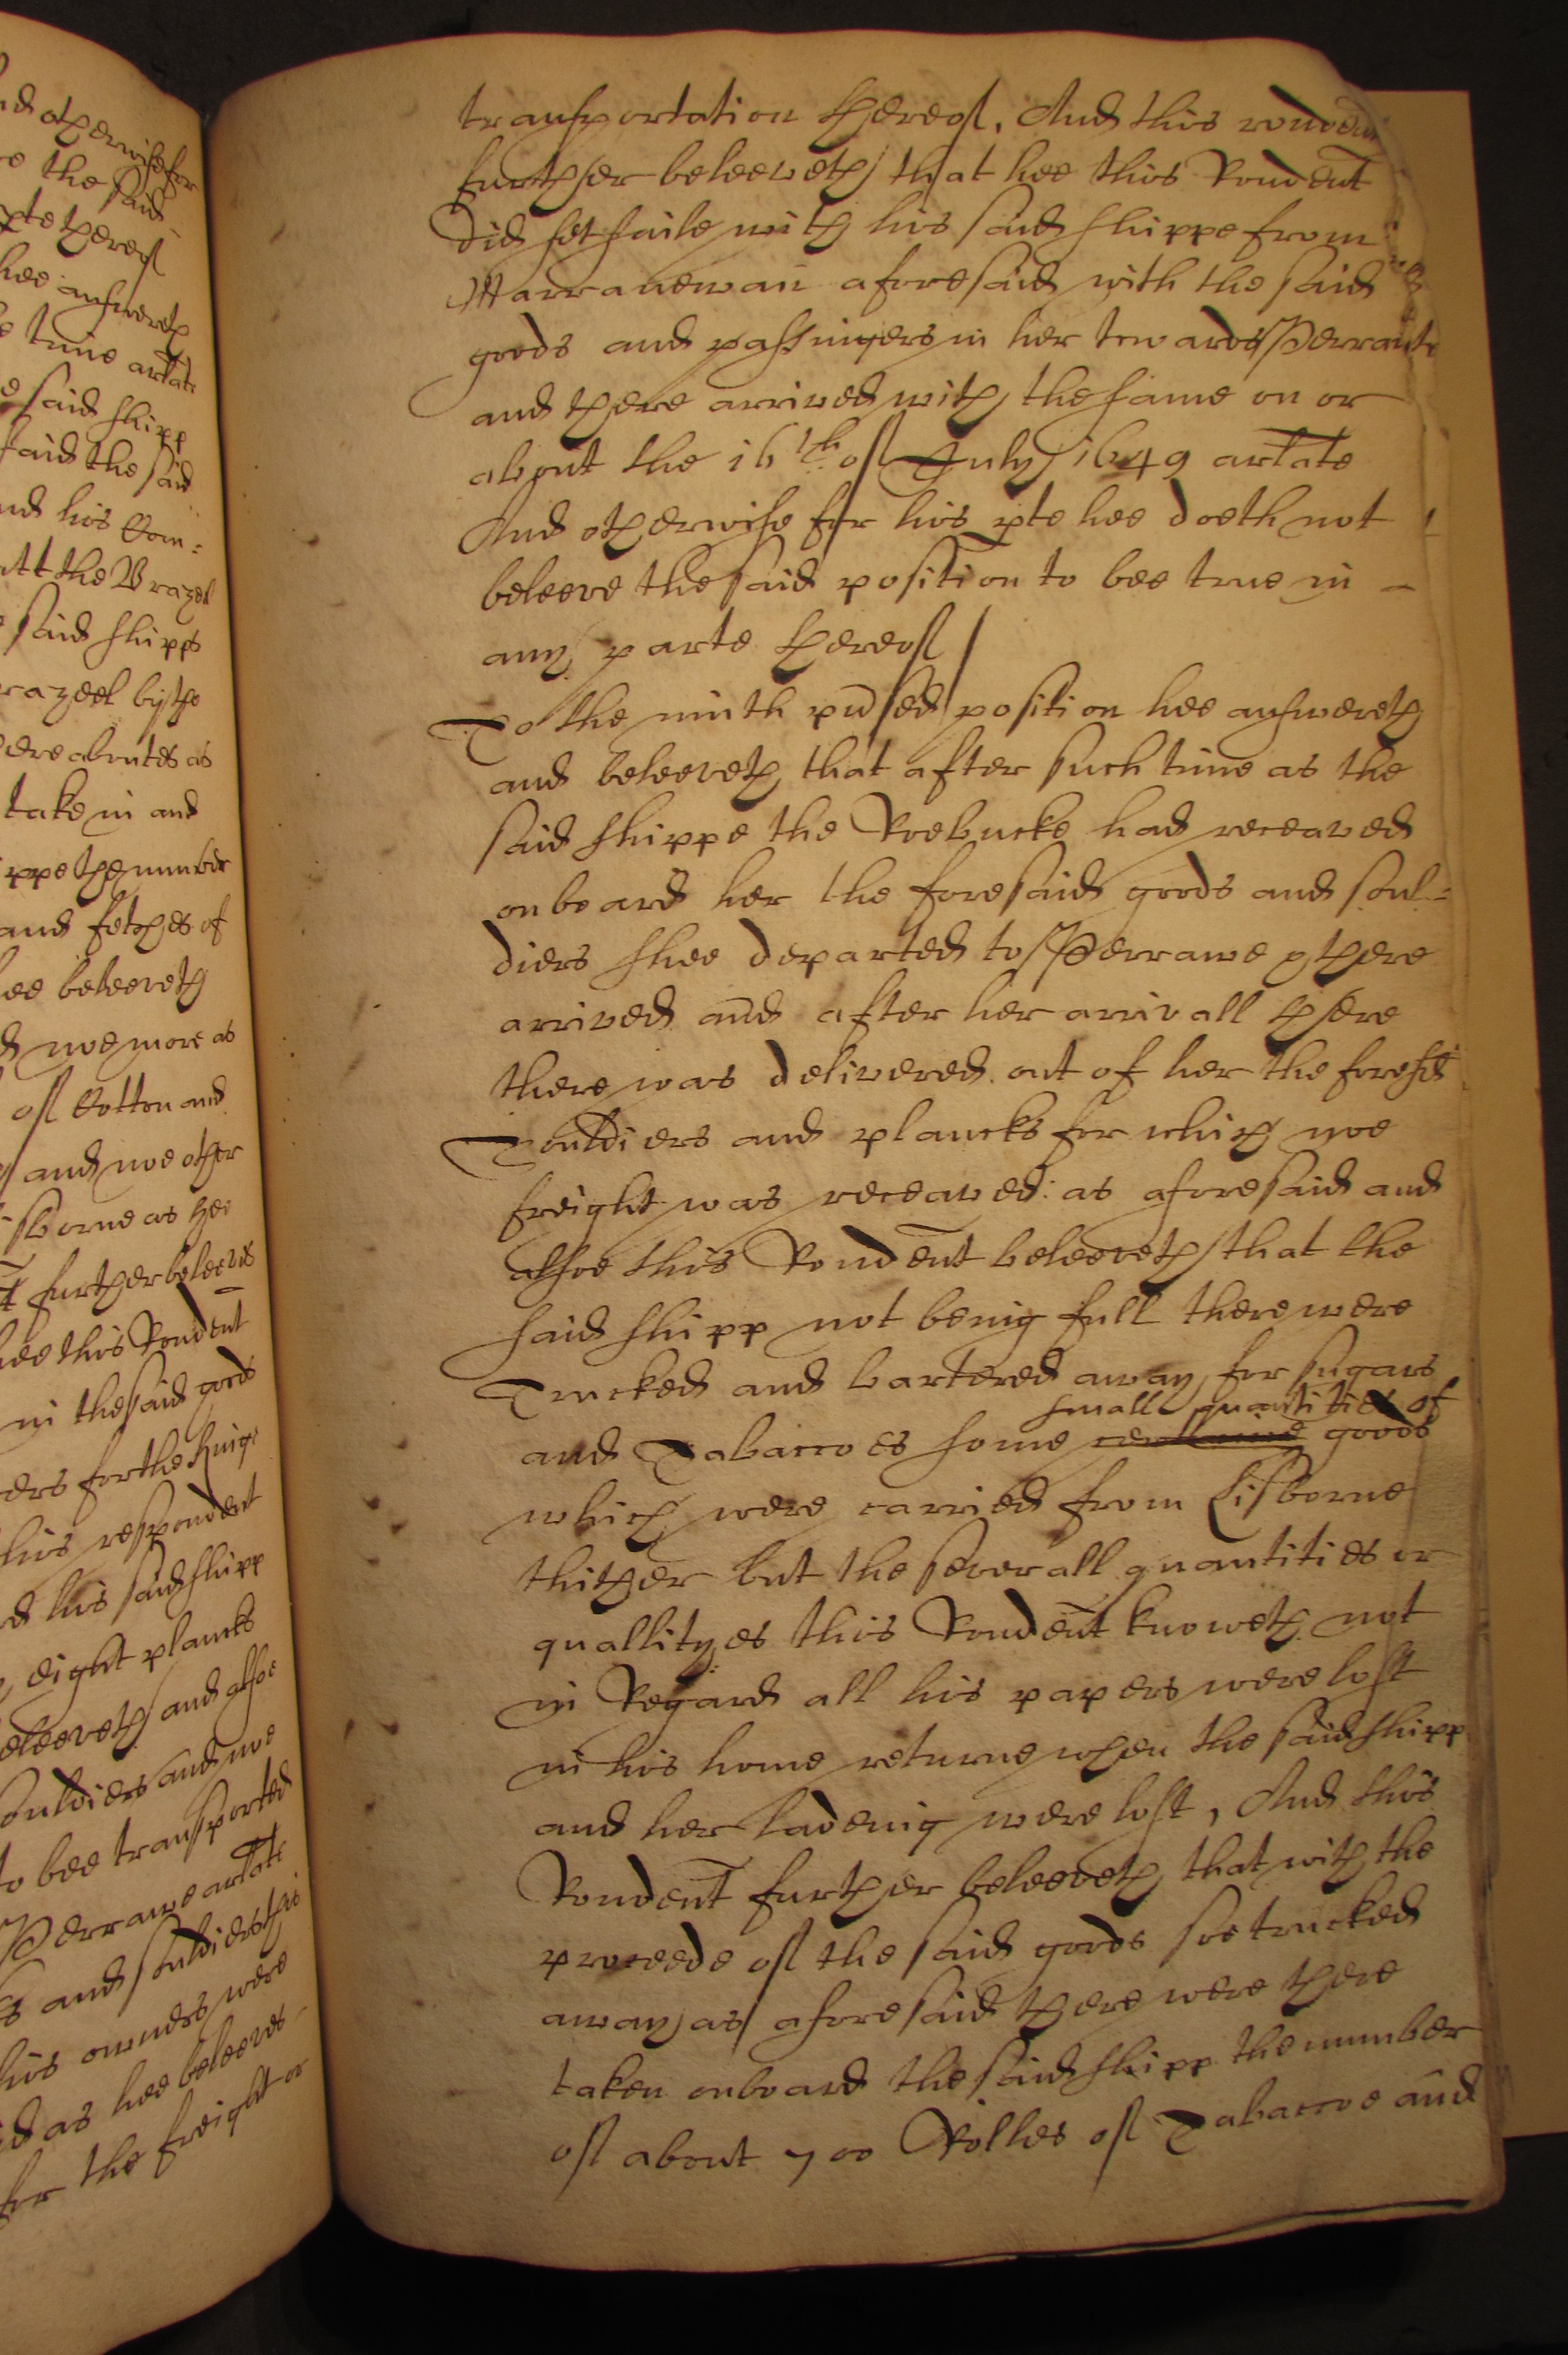 nd otherwise for
e the said
pte thereof
hee answereth
e time arlate
e said shipp
said the said
nd his Com=
att the Brazeel
said shipps
razeel by the
ere aboutes as
take in and
ippe the number
and fetches of
hee beleeveth
d noe more as
of Cotton and
and noe other
isborne as hee
t further beleeves
hee this Rondent
in the said goods
ers for the kings
his respondent
d his said shipp
eight plancks
eleeveth and alsoe
souldiers and noe
to bee transported
Perrawe arlate
s and souldiers the
his owners were
d as hee beleeves
for the freight or
transportation thereof, And this ronden
further beleeveth that hee this Rondent
did set saile with his said shippe from
Marranewan aforesaid with the said
goods and passingers in her towards Perraute
and there arrived with the same on or
about the 16th of July 1649 arlate
And otherwise for his pte hee doeth not
beleeve the said position to bee true in -
any parte thereof
To the ninth pndsed position hee answereth
and beleeveth that after such time as the
said shippe the Roebucke had receaved
on board her the foresaid goods and soul=
diers shee departed to Perrawe & there
arrived and after her arrivall there
there was delivered out of her the foresd
Souldiers and plancks for which noe
freight was receaved: as aforesaid and
alsoe this Rondent beleeveth that the
said shipp not being full there were
Trucked and bartered away for sugars
small quantities of
and Tabaccoes some certaine goods
which were carried from Lisborne
thither but the severall quantities or
quallityes this Rondent knoweth not
in Regard all his papers were lost
in his home returne when the said shipp
and her ladeing were lost, And this
Rondent further beleeveth that with the
proceede of the said goods soe trucked
away as aforesaid there were there
taken onboard the said shipp the number
of about 700 Rolles of Tabaccoe and